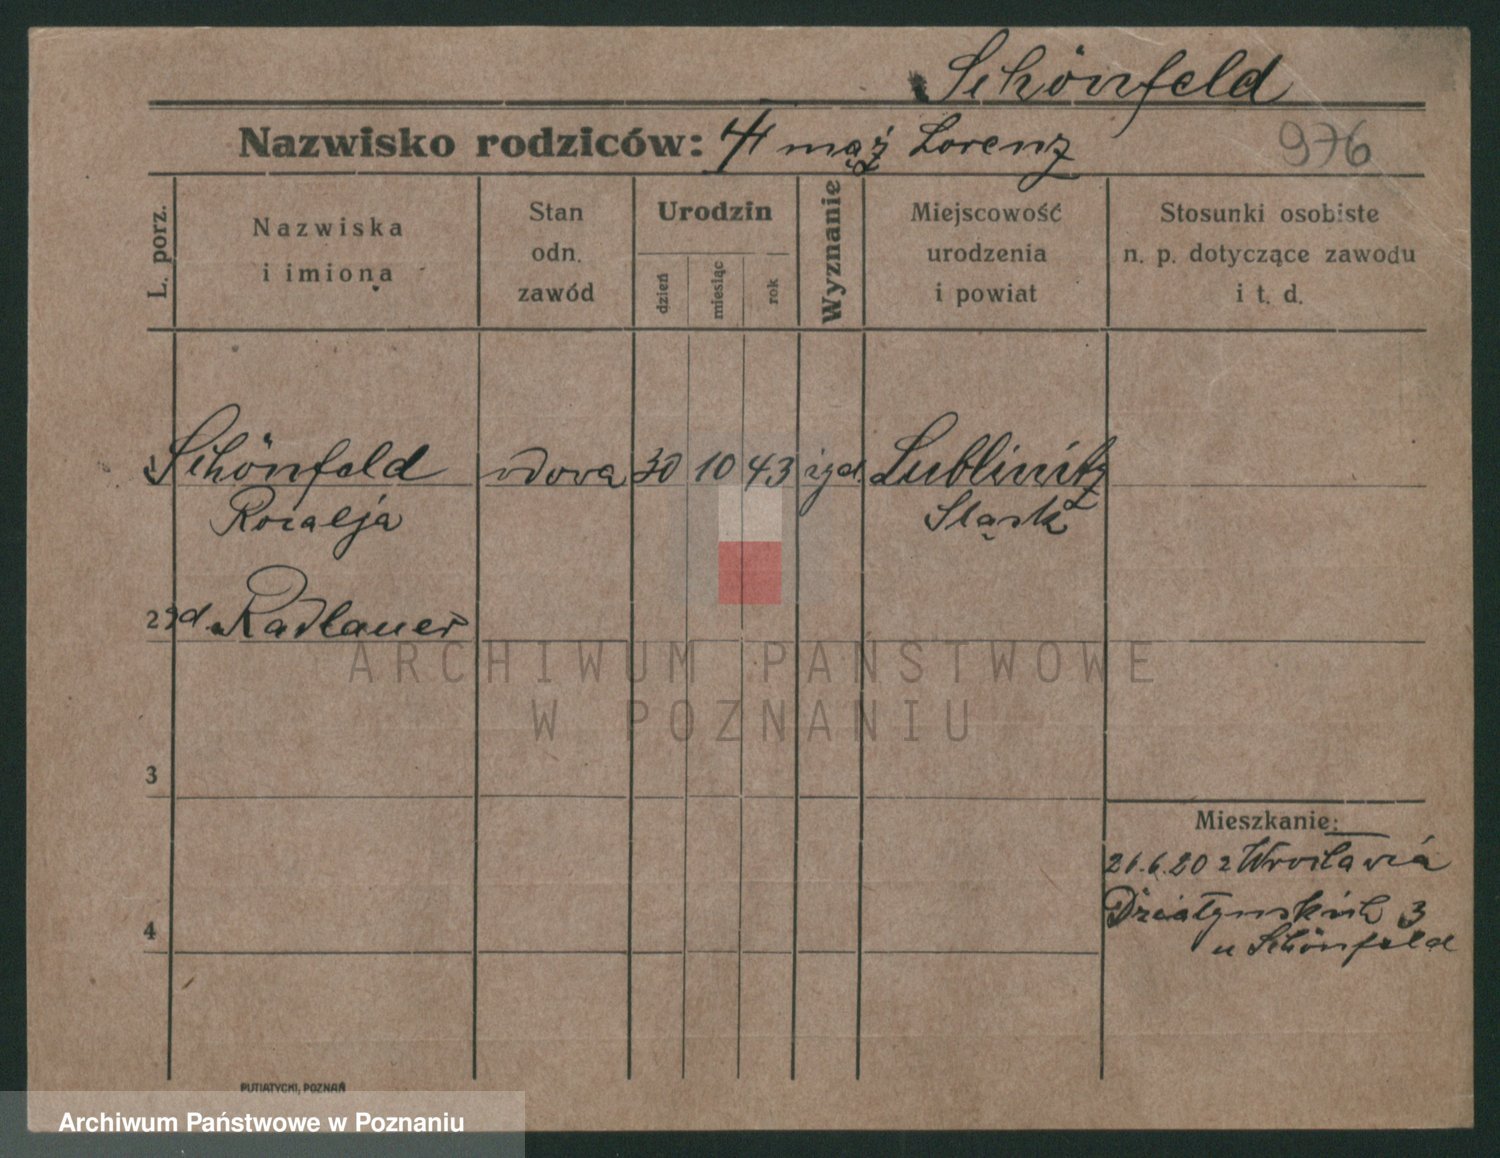 Schönfeld
Nazwisko rodziców: mąż Lorenz 976
L. porz.
Nazwiska
i imiona
Stan
odn.
zawód
Urodzin
dzień
miesiąc
rok
Wyznanie
Miejscowość
urodzenia
i powiat
Stosunki osobiste
n. p. dotyczące zawodu
i t. d.
1 Schönfeld wdowa 30 10 43 iżd. Lublinitz
Rozalja Śląsk
2 Radlauer
3
Mieszkanie:
21.6.20 z Wrocławia
Działyńskich 3
u Schönfeld
4
PUTIATYCKI, POZNAŃ
ARCHIWUM PAŃSTWOWE
W POZNANIU
Archiwum Państwowe w Poznaniu